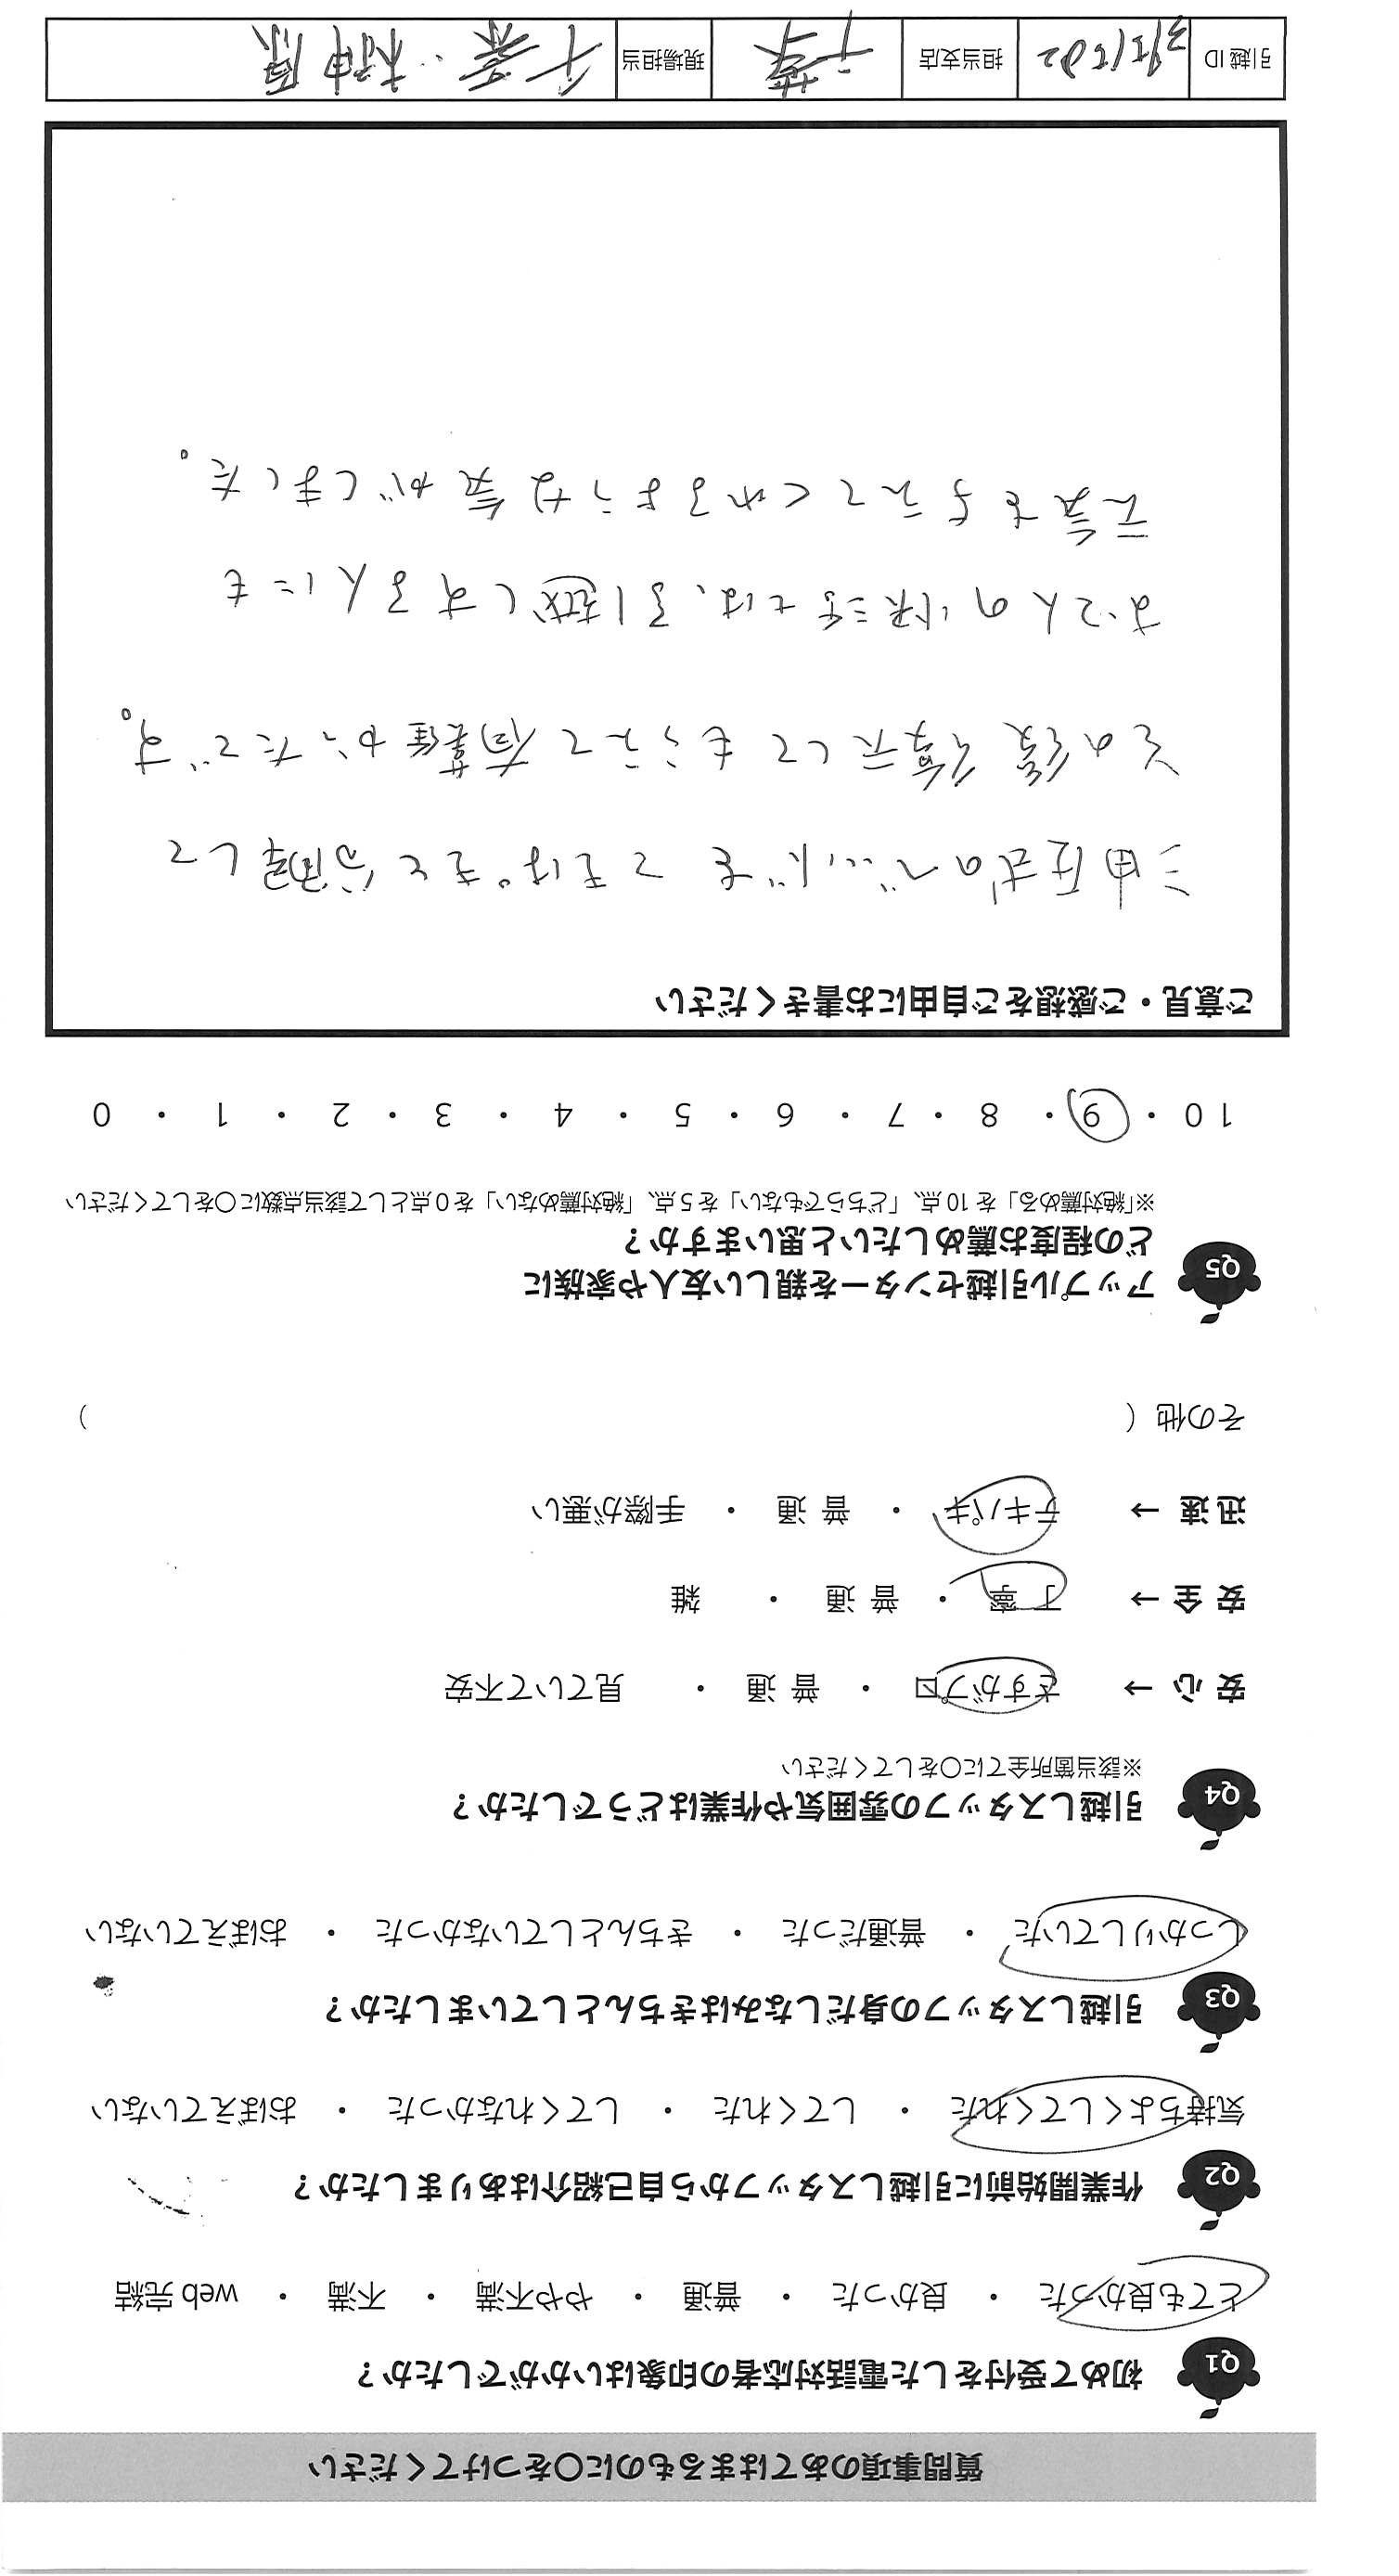 質問事項のあてはまるものに〇をつけてください
Q1 初めて受付をした電話対応者の印象はいかがでしたか？
とても良かった ・ 良かった ・ 普通 ・ やや不満 ・ 不満 ・ web 完結
Q2 作業開始前に引越しスタッフから自己紹介はありましたか？
気持ちよくしてくれた ・ してくれた ・ してくれなかった ・ おぼえていない
Q3 引越しスタッフの身だしなみはきちんとしていましたか？
しっかりしていた ・ 普通だった ・ きちんとしていなかった ・ おぼえていない
Q4 引越しスタッフの雰囲気や作業はどうでしたか？
※該当箇所全てに〇をしてください
安 心 → さすがプロ ・ 普 通 ・ 見ていて不安
安 全 → 丁 寧 ・ 普 通 ・ 雑
迅 速 → テキパキ ・ 普 通 ・ 手際が悪い
その他（ ）
Q5 アップル引越センターを親しい友人や家族に
どの程度お薦めしたいと思いますか？
※「絶対薦める」を 10 点、「どちらでもない」を 5 点、「絶対薦めない」を 0 点として該当点数に〇をしてください
10 ・ 9 ・ 8 ・ 7 ・ 6 ・ 5 ・ 4 ・ 3 ・ 2 ・ 1 ・ 0
ご意見・ご感想をご自由にお書きください
油圧式のベッドを てきぱきと分解して
その後復元してもらえて有難かったです。
お二人の快活さは、引越しする人にも
元気を与えてくれるような気がしました。
引越 ID 担当支店 千葉 現場担当 千葉・榊原